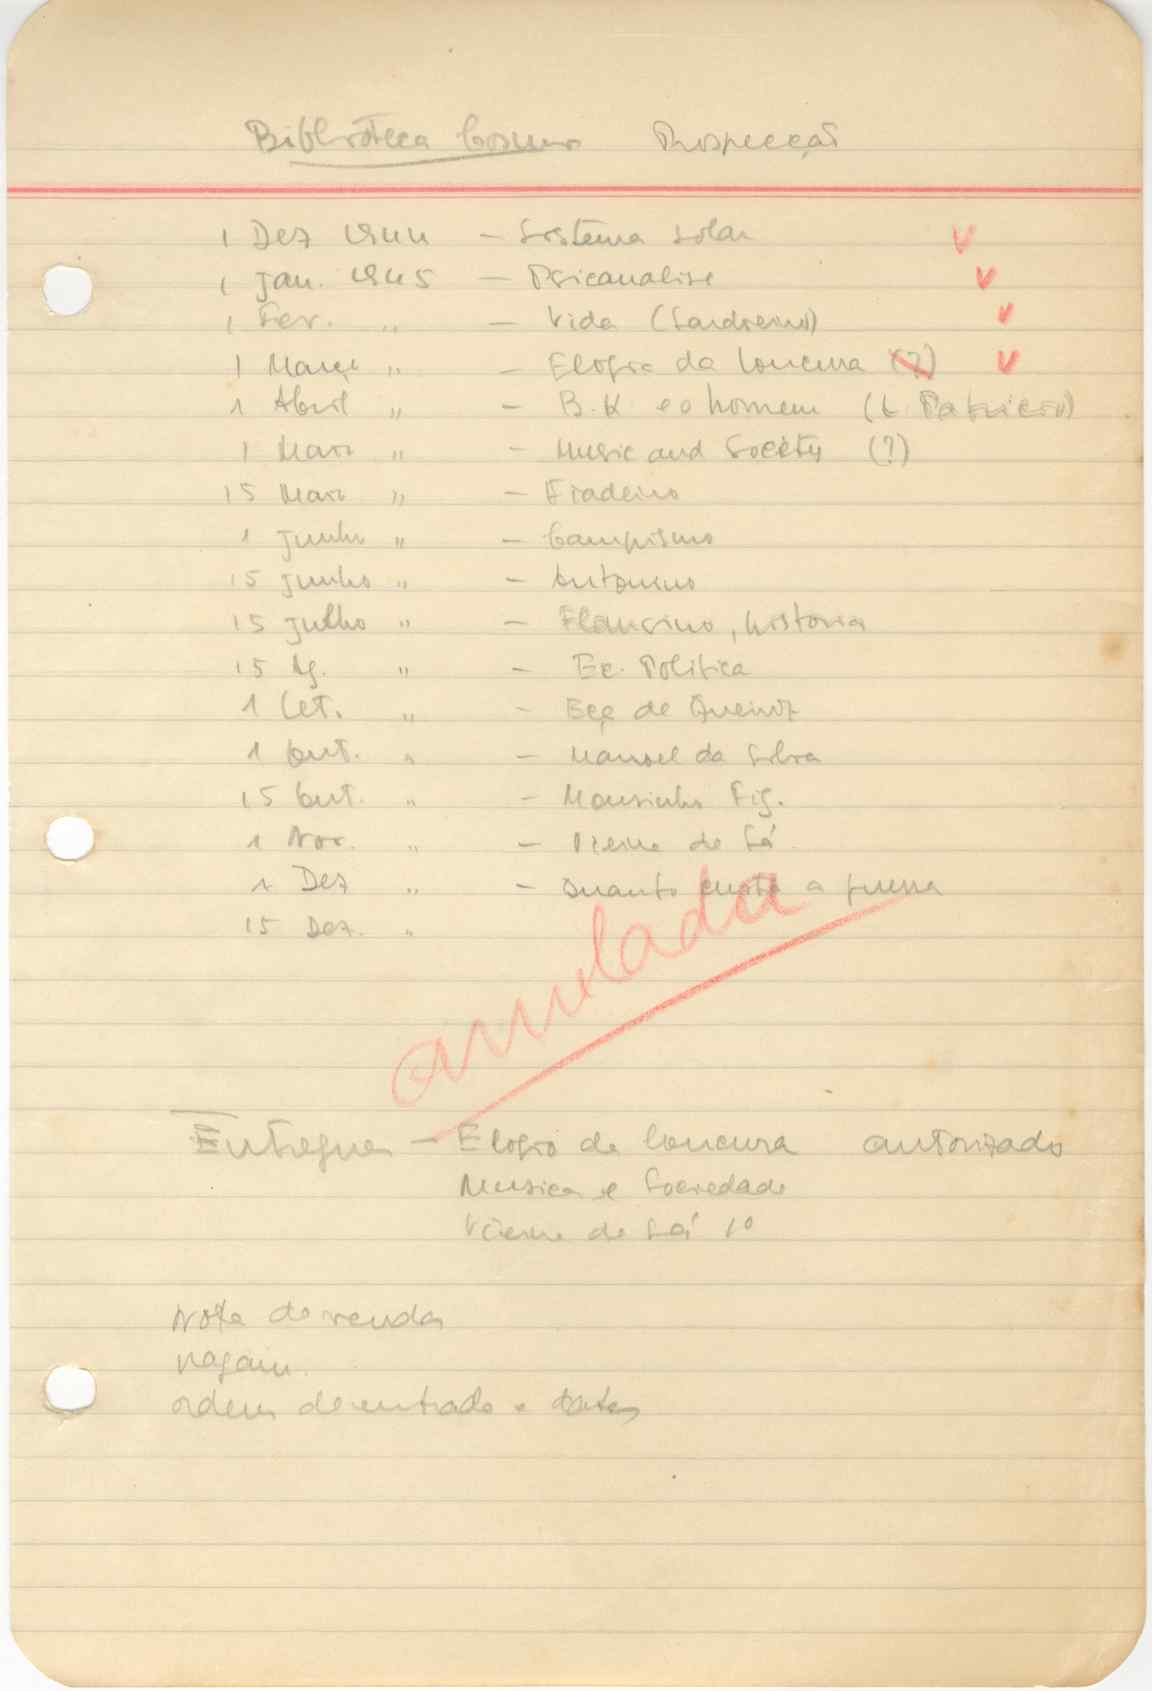 Biblioteca Cosmo Prospecção
1 Dez 1944 — Sistema Solar V
1 Jan. 1945 — Psicanalise V
1 Fev. " — Vida V
1 Março " — Elogio da loucura (?) V
1 Abril " — B.K e o homem (L. Patricio)
1 Maio " — Music and Society (?)
15 Maio " — Fradeiro
1 Junho " — Campismo
15 Junho " — Antonino
15 Julho " — historia
15 Ag. " — Ec. Politica
1 Set. " — Eça de Queiroz
1 Out. " — Manoel da Silva
15 Out. " — Mousinho Fig.
1 Nov. " — de Sá
1 Dez " — Quanto custa a guerra
15 Dez. "
anulada
Entregues — Elogio da loucura autorizado
Musica e Sociedade
de Sá 1º
Nota de venda
ordem de entrada e datas